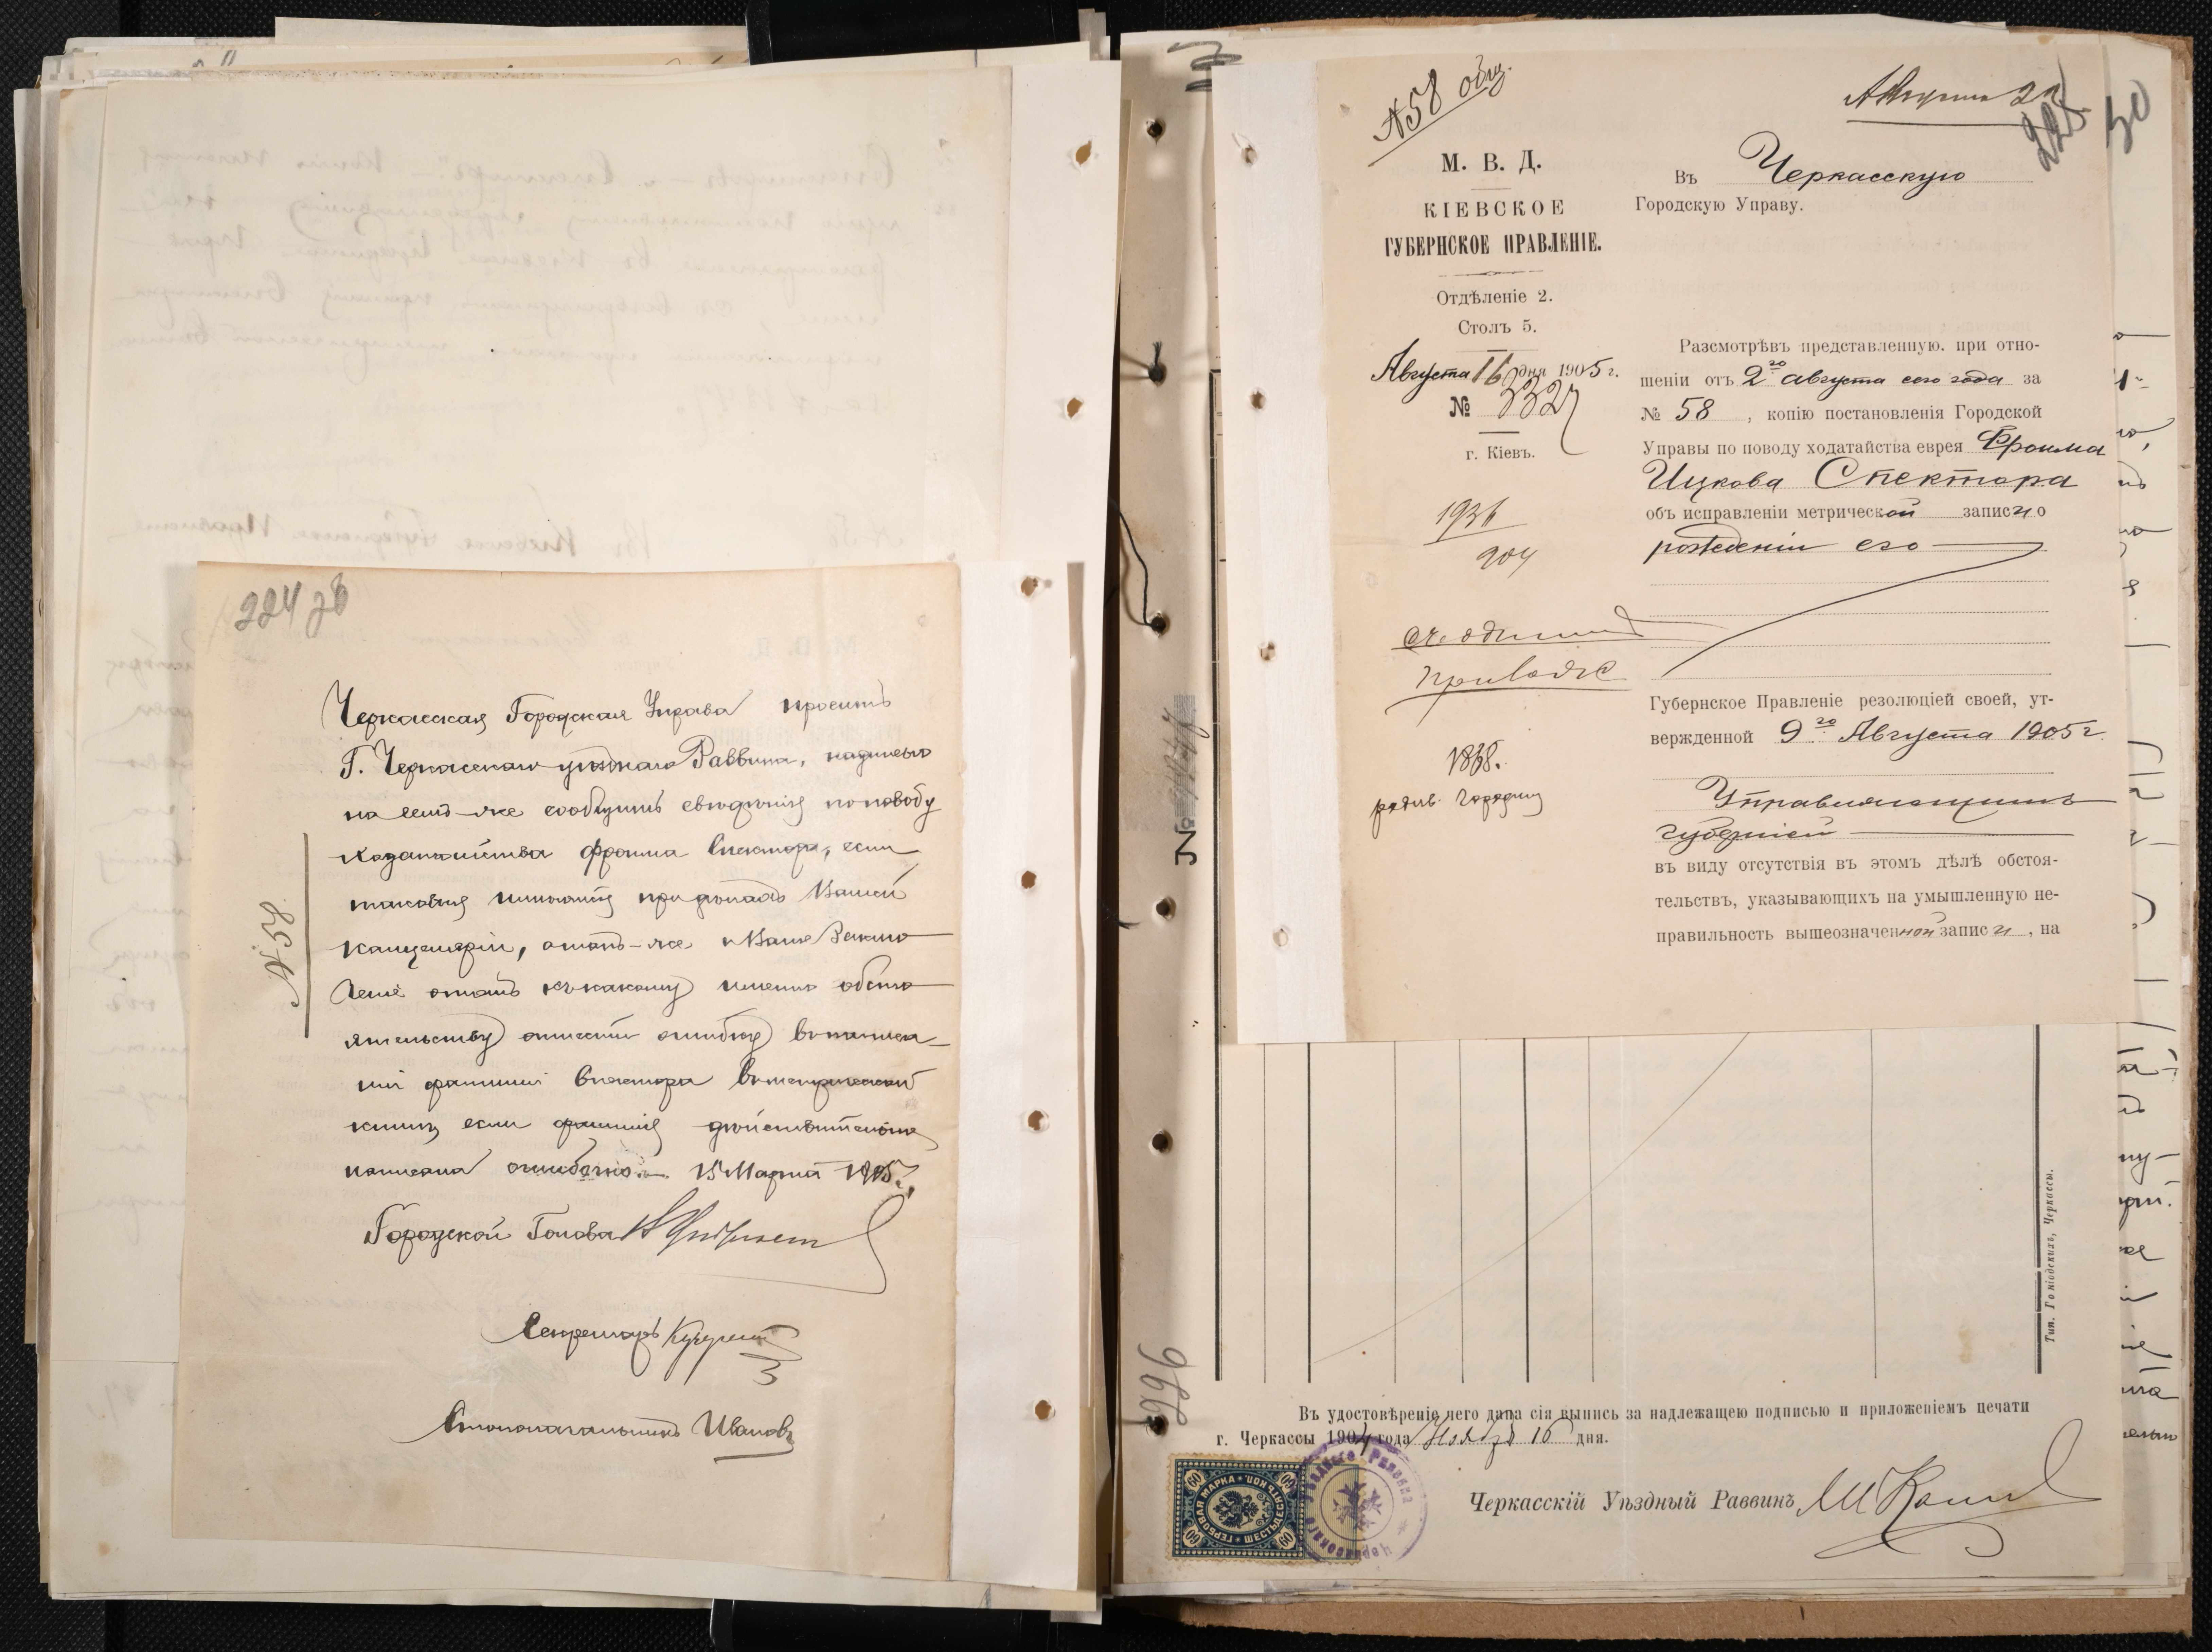 224 об
Черкасская Городская Управа проситъ
Г. Черкасскаго уѣзднаго Раввина, надписью
на семъ-же сообщить свѣдѣнія по поводу
ходатайства Фроима Спектора, если
таковыя имѣются при дѣлахъ Вашей
канцеляріи, а также и Ваше Заклю
ченіе къ какому именно обсто
ятельству отнести ошибку въ написа-
ніи фамиліи Спектора въ метрической
книгѣ если фамилія дѣйствительно
написана ошибочно. 15 Марта 1905 г.
№ 58
Городской Голова
Секретарь
Столоначальникъ Ивановъ
№ 58 общ.
50
М. В. Д.
КІЕВСКОЕ
ГУБЕРНСКОЕ ПРАВЛЕНІЕ.
Отдѣленіе 2.
Столъ 5.
Августа 16 дня 1905 г.
№ 3327
г. Кіевъ.
1936
904
1868.
Въ Черкасскую
Городскую Управу.
Разсмотрѣвъ представленную. при отно-
шеніи отъ 2го августа сего года за
№ 58 , копію постановленія Городской
Управы по поводу ходатайства еврея Фроима
Ицкова Спектора
объ исправленіи метрической записи о
рожденіи его
Губернское Правленіе резолюціей своей, ут-
вержденной 9го Августа 1905 г.
Управляющимъ
губерніей
въ виду отсутствія въ этомъ дѣлѣ обстоя-
тельствъ, указывающихъ на умышленную не-
правильность вышеозначенной записи , на
№
226
Тип. Городскихъ, Черкассы.
Въ удостовѣреніе чего дана сія выпись за надлежащею подписью и приложеніемъ печати
г. Черкассы 1904 года Ноября 16 дня.
Черкасскій Уѣздный Раввинъ
ГЕРБОВАЯ МАРКА
ШЕСТЬДЕСЯТЪ КОП.
60
60
60
60